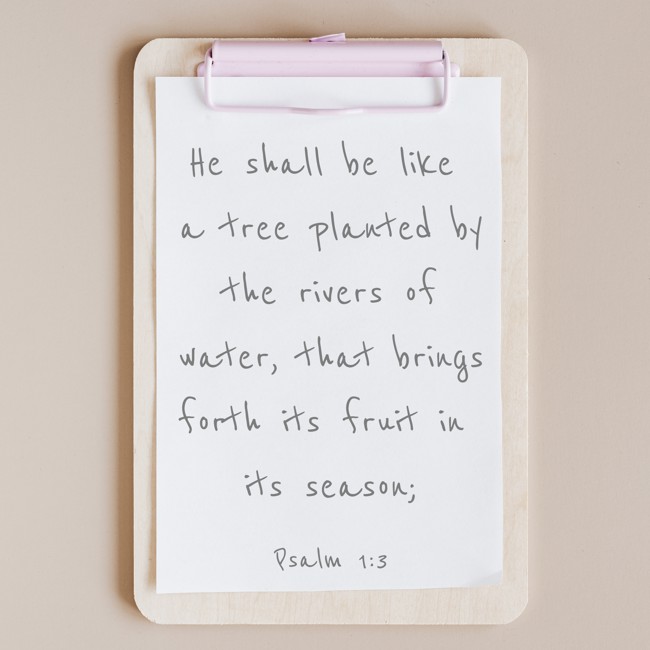 He shall be like
a tree planted by
the rivers of
water, that brings
forth its fruit in
its season;
Psalm 1:3